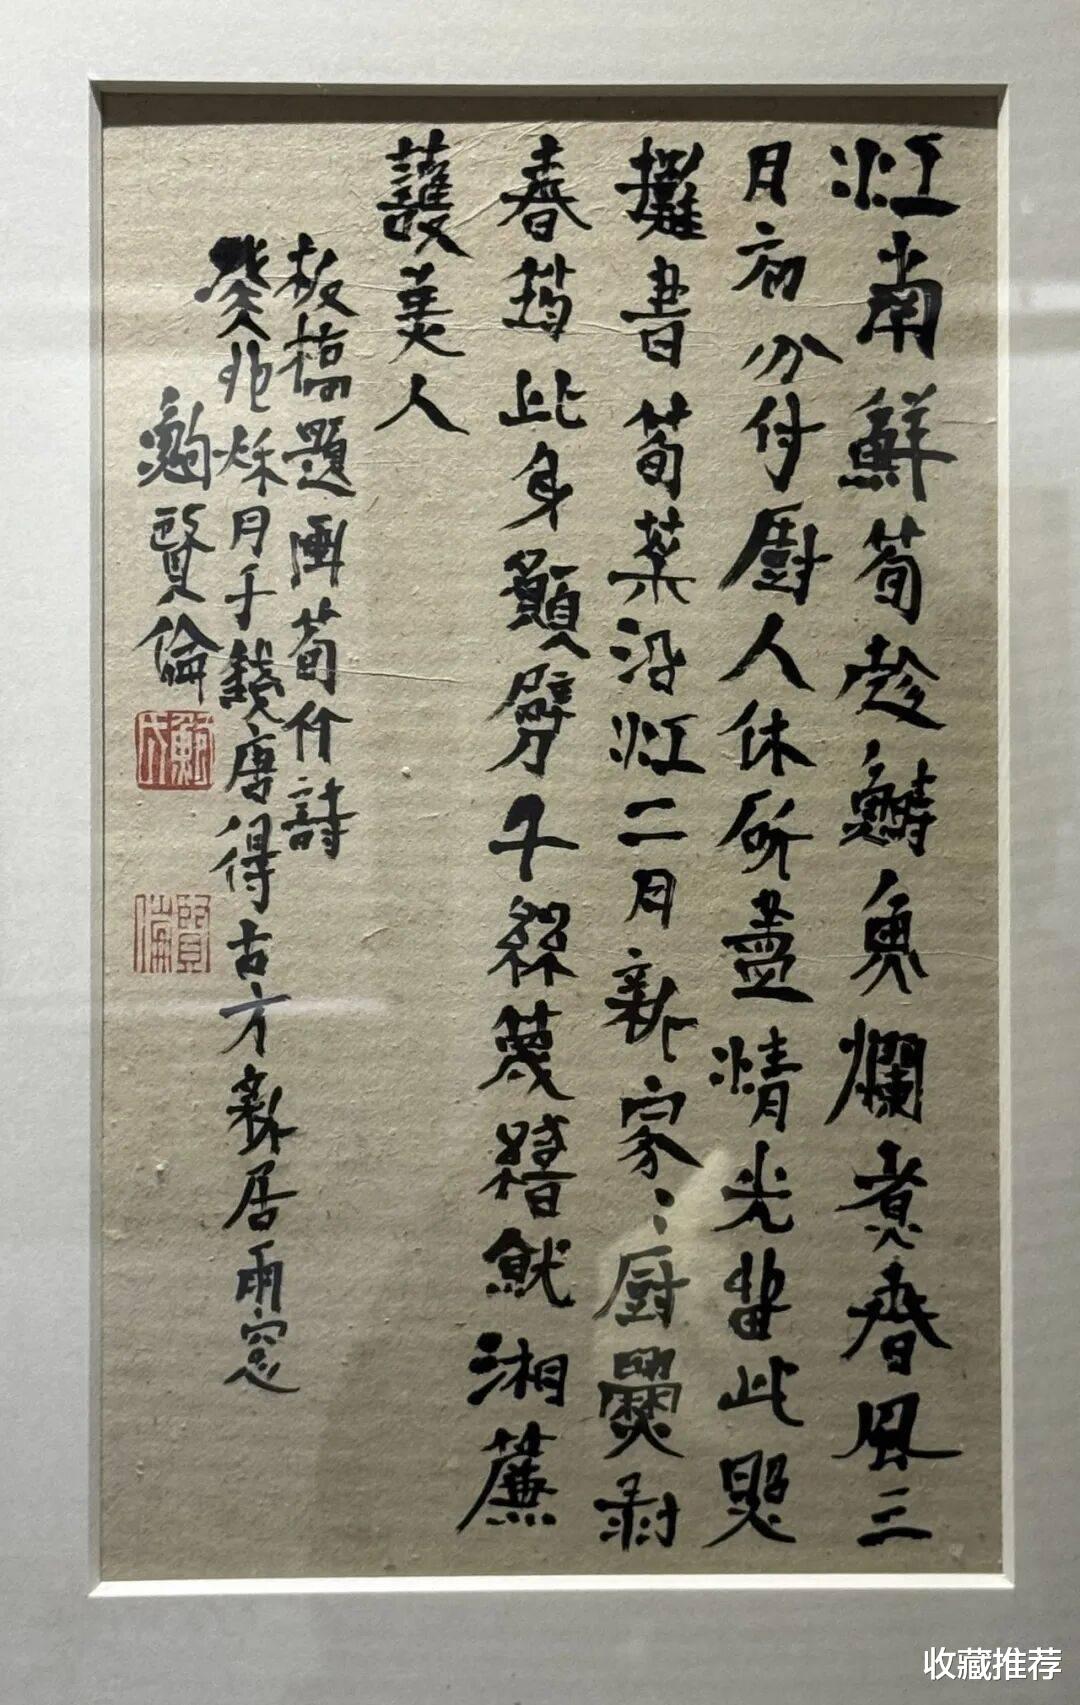 江南鮮筍趁鰣魚爛煮春風三
月初分付廚人休斫盡清光留此照
攤書筍菜沿江二月新家〻厨爨剥
春筠此身願劈千絲篾織就湘簾
護美人
板橋題画筍竹詩
癸卯秋月于錢唐得古方新居雨窓
鮑賢倫
賢倫
收藏推荐